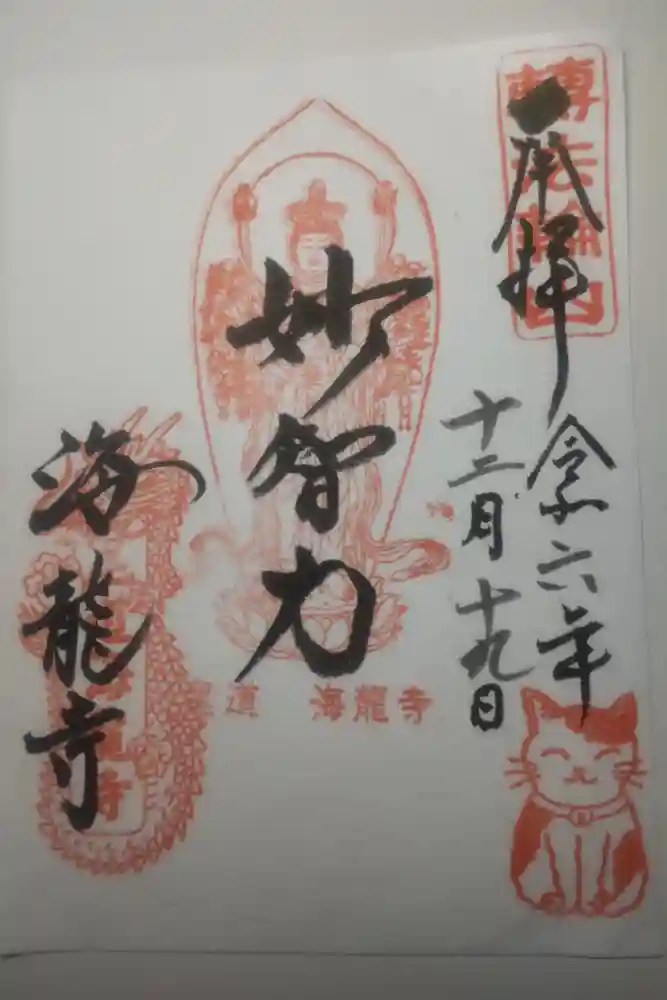 轉法輪山
奉拝
令和六年
十二月十九日
妙智力
道　海龍寺
海龍寺